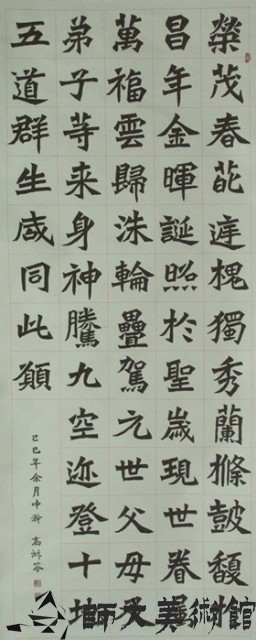 榮茂春葩庭槐獨秀蘭條鼓馥於
昌年金暉誕照於聖歲現世眷屬
萬福雲歸洙輪疊駕元世父母及
弟子等来身神騰九空迹登十地
五道群生咸同此願
己巳年余月中澣 高
師大美術館